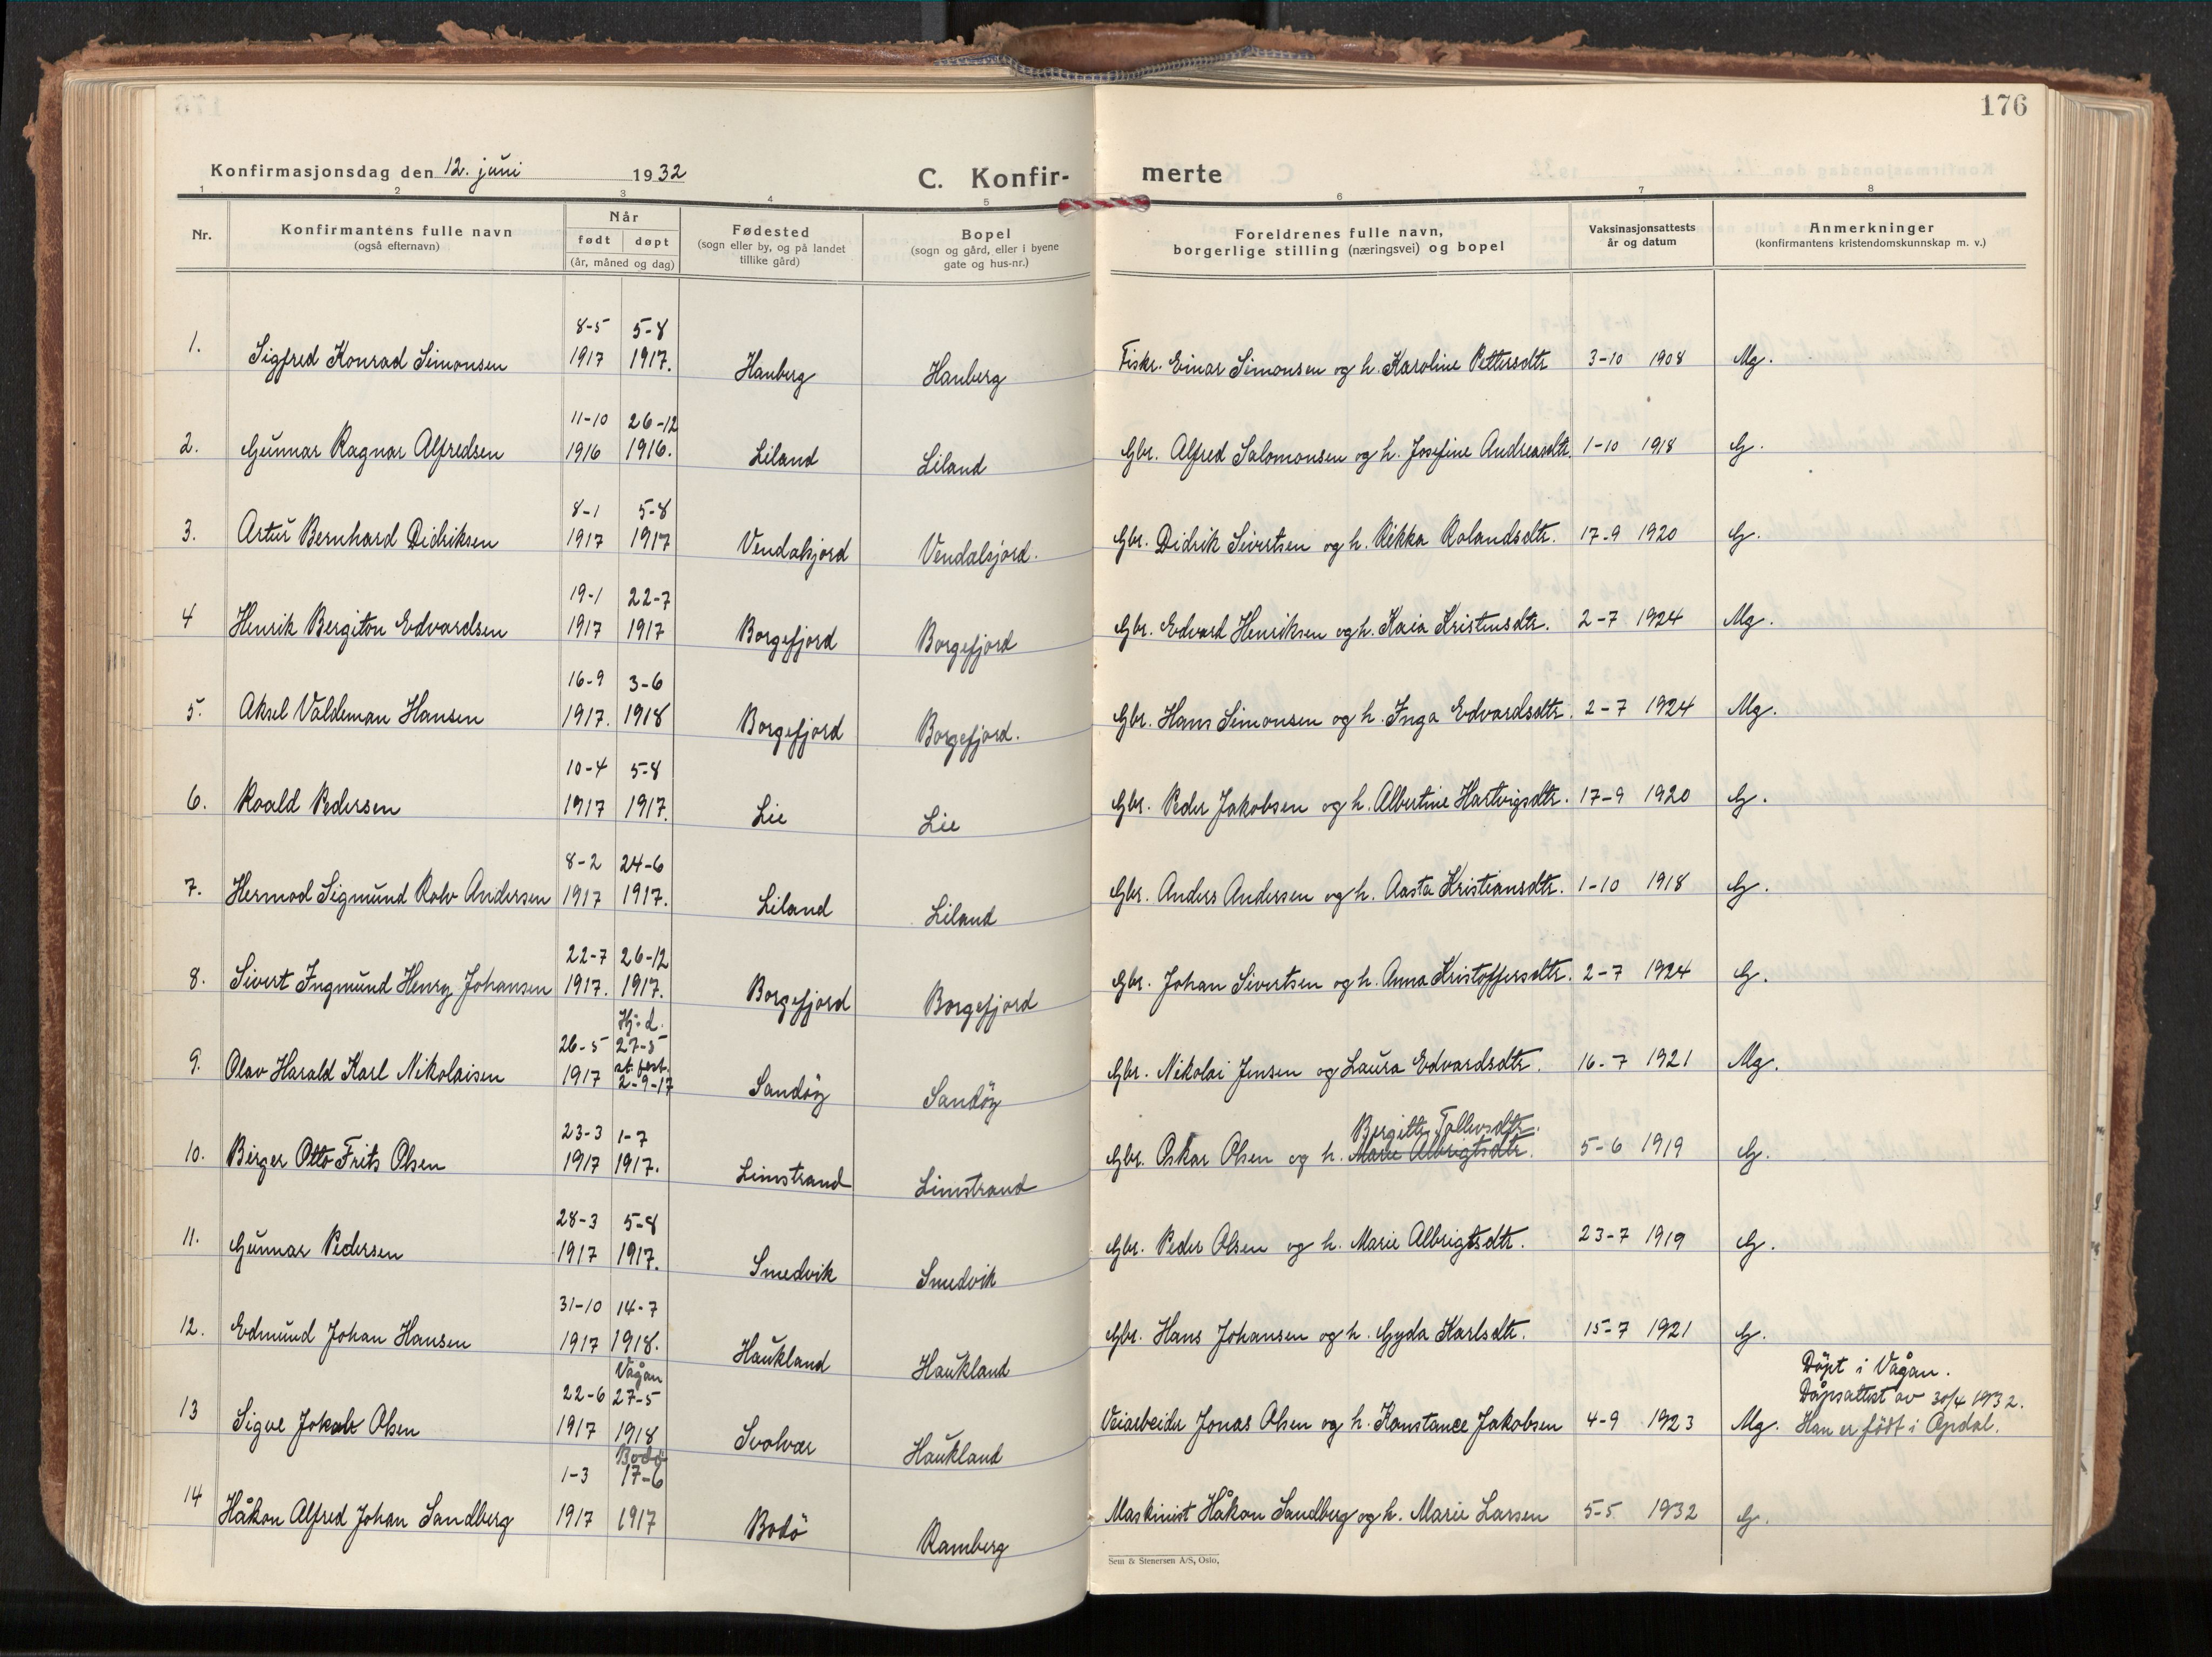 176
Konfirmasjonsdag den 12. juni 1932
C. Konfir- merte
1 2 3 4 5 6 7 8
Nr. Konfirmantens fulle navn (også efternavn) Når født døpt (år, måned og dag) Fødested (sogn eller by, og på landet tillike gård) Bopel (sogn og gård, eller i byene gate og hus-nr.) Foreldrenes fulle navn, borgerlige stilling (næringsvei) og bopel Vaksinasjonsattests år og datum Anmerkninger (konfirmantens kristendomskunnskap m. v.)
8-5 5-8
1. Sigfred Konrad Simonsen 1917 1917. Hauberg Hauberg Fiskr. Einar Simonsen og h. Karoline Pettersdtr 3-10 1908 Mg.
11-10 26-12
2. Gunnar Ragnar Alfredsen 1916 1916. Liland Liland Gbr. Alfred Salomonsen og h. Josefine Andreasdtr. 1-10 1918 G.
8-1 5-8
3. Artur Bernhard Didriksen 1917 1917 Vendalsjord Vendalsjord. Gbr. Didrik Sivertsen og h. Rikka Rolandsdtr. 17-9 1920 G.
19-1 22-7
4 Henrik Bergiton Edvardsen 1917 1917 Borgefjord Borgefjord Gbr. Edvard Henriksen og h. Kaia Kristensdtr. 2-7 1924 Mg.
16-9 3-6
5. Aksel Valdeman Hansen 1917. 1918 Borgefjord Borgefjord. Gbr. Hans Simonsen og h. Inga Edvardsdtr. 2-7 1924 Mg.
10-4 5-8
6. Roald Pedersen 1917 1917. Lie Lie Gbr. Peder Jakobsen og h. Albertine Hartvigsdtr. 17-9 1920 G.
8-2 24-6
7. Hermod Sigmund Rolv Andersen 1917 1917. Liland Liland Gbr. Anders Andersen og h. Aasta Kristiansdtr. 1-10 1918 G.
22-7 26-12
8. Sivert Ingmund Henry Johansen 1917. 1917. Borgefjord Borgefjord Gbr. Johan Sivertsen og h. Anna Kristoffersdtr. 2-7 1924 G.
Hj. d.
26-5 27-5
st. fest.
9. Olav Harald Karl Nikolaisen 1917 2-9-17 Sandöy Sandöy Gbr. Nikolai Jensen og Laura Edvardsdtr. 16-7 1921 Mg.
23-3 1-7 Bergitte Tollevsdtr.
10. Birger Otto Frits Olsen 1917 1917. Limstrand Limstrand Gbr. Oskar Olsen og h. Marie Albrigtsdtr. 5-6 1919 G.
28-3 5-8
11. Gunnar Pedersen 1917 1917. Smedvik Smedvik Gbr. Peder Olsen og h. Marie Albrigtsdtr. 23-7 1919 G.
31-10 14-7
12. Edmund Johan Hansen 1917 1918. Haukland Haukland Gbr. Hans Johansen og h. Gyda Karlsdtr. 15-7 1921 G.
Vågan Döpt i Vågan.
22-6 27-5 Dåpsattest av 30/4 1932.
13 Sigve Jokab Olsen 1917 1918 Svolvær Haukland Veiarbeider Jonas Olsen og h. Konstance Jakobsen 4-9 1923 Mg. Han er födt i Opdal.
Bodö
1-3 17-6
14 Håkon Alfred Johan Sandberg 1917 1917 Bodö Ramberg Maskinist Håkon Sandberg og h. Marie Larsen 5-5 1932 G.
Sem & Stenersen A/S, Oslo.